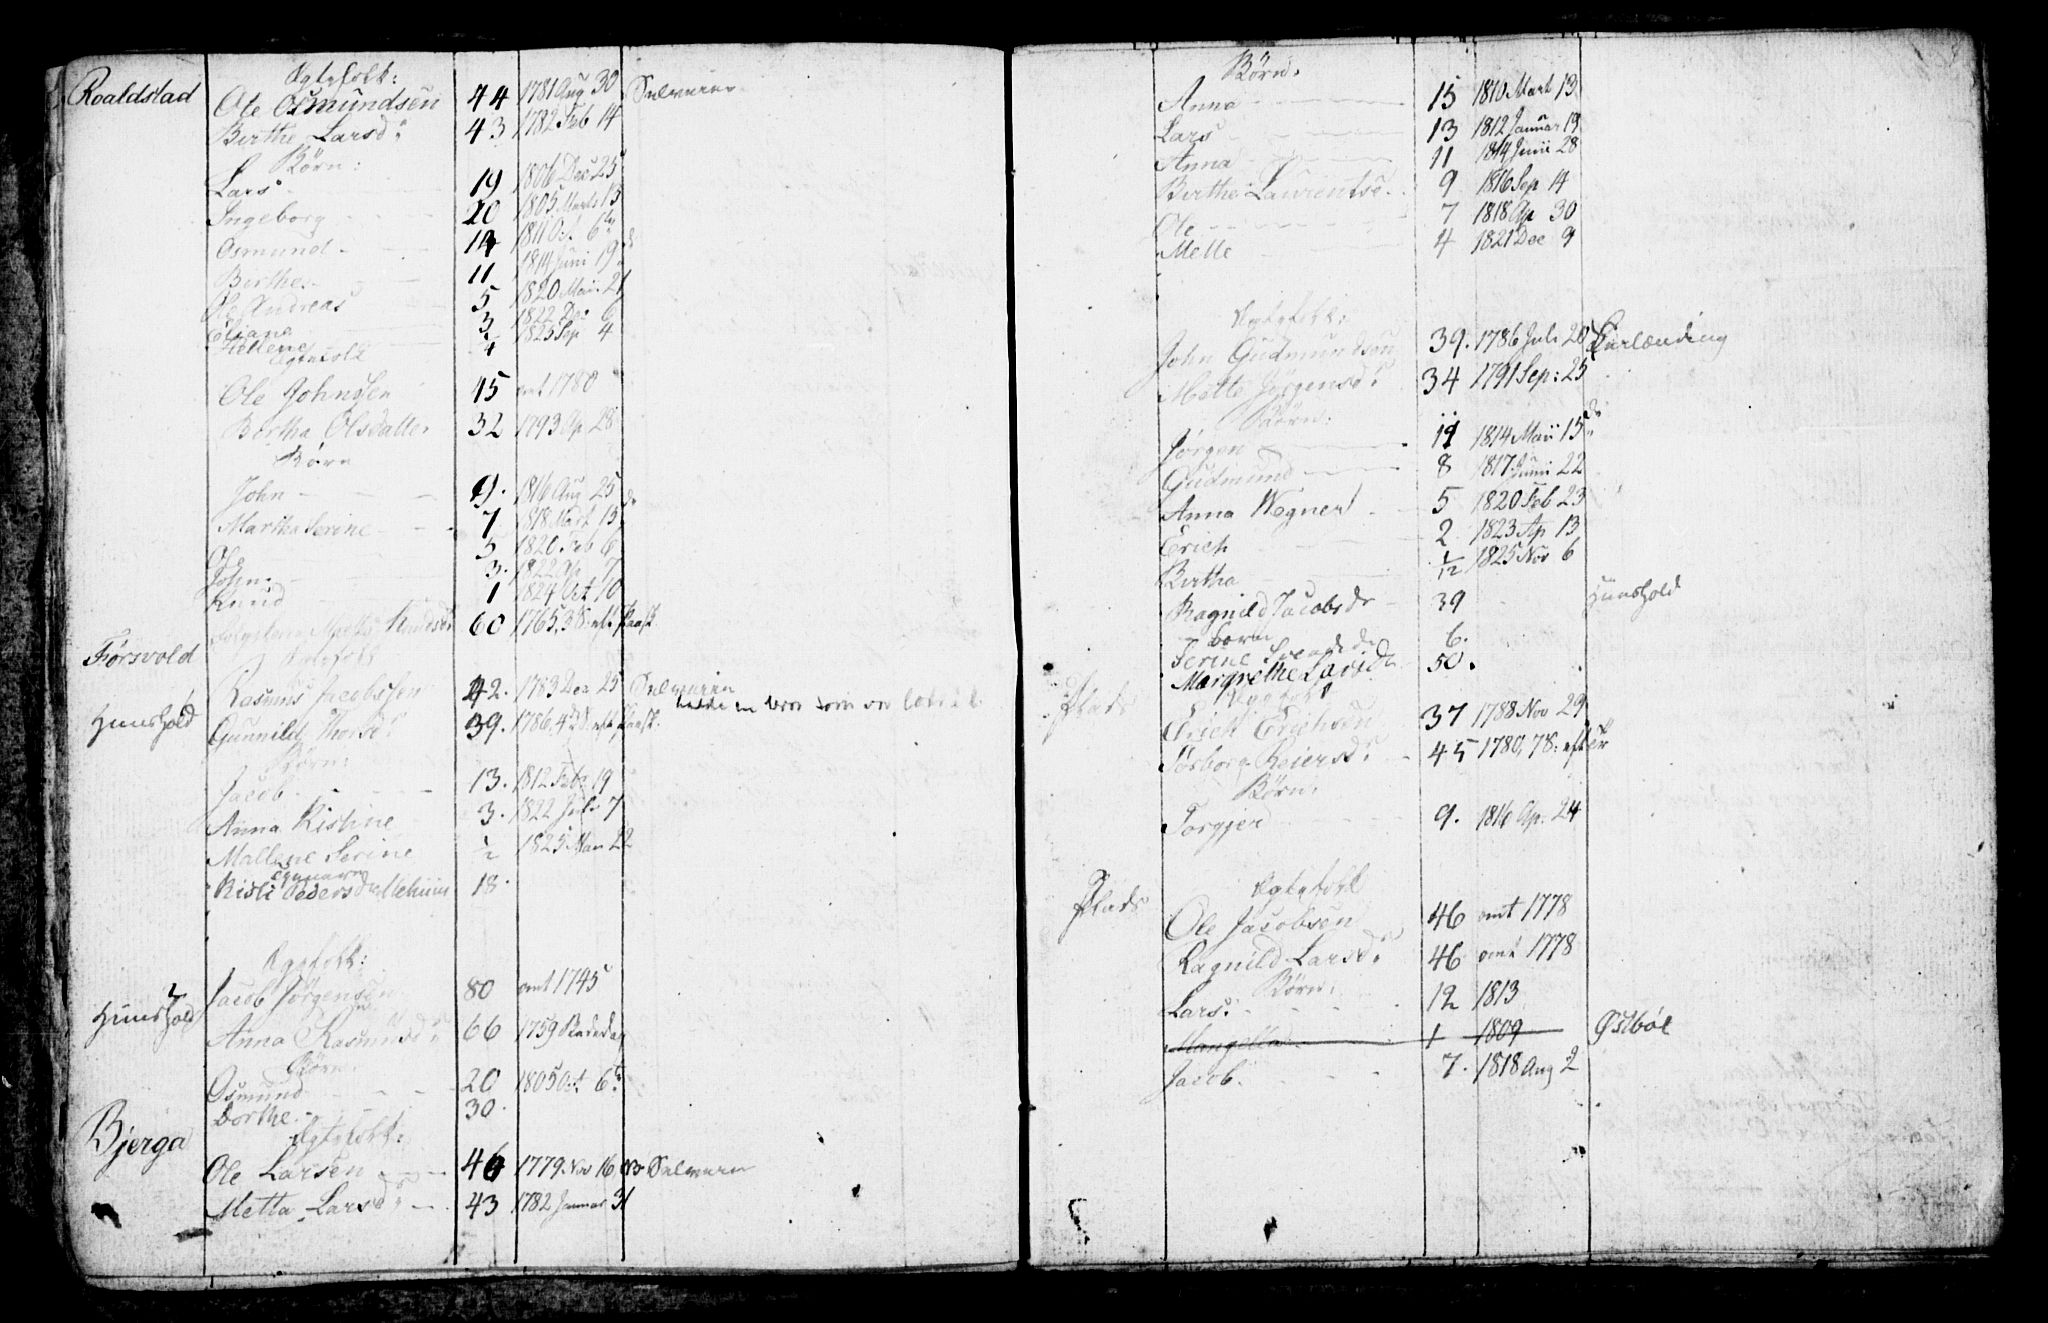 Roaldstad
Egtefolk:
Ole Osmundsen 44 1781 Aug 30 Selveier
Birthe Larsd: 43 1782 Feb 14
Børn:
Lars 19 1806 Dec 25
Ingeborg 20 1805 Marts 13
Osmund 14 1811 Oct 6
Birthe 11 1814 Juni 19
Ole Andreas 5 1820 Maii 21
Eliana 3 1822 Dec 6
1825 Sep 4
Egtefolk
Ole Johnssen 45 omt 1780
Bertha Olsdatter 32 1793 Ap 28
Børn
John 9. 1816 Aug 25
Martha Serine 7 1818 Mart 15
Ole 5 1820 Feb 6
John 3. 1822 Ap 7
Knud 1 1824 Oct 10
60 1765, 3 S: eft Paask
Førsvold
Egtefolk
Rasmus Jacobssen 42. 1783 Dec 25 Selveier
Hunshold
Gunnild Thorsd: 39. 1786, 4 S: eft Paask.
Børn:
Jacob 13. 1812 Feb 19
Anna Kistine 3. 1822 Juli 7
Mallene Serine ½ 1825 Mar 22
Kisti Pedersdr Mehuus 18.
Egtefolk:
Jacob Jørgensen 80 omt 1745
Hunshold
Anna Rasmusd: 66 1759 Bededag
Børn:
Osmund 20 1805 Oct 6
Dorthe 30.
Bjerga
Egtefolk:
Ole Larsen 46 1779 Nov 16 Selveier
Metta Larsd: 43 1782 Januar 31
Børn:
Anna 15 1810 Mart 13
Lars 13 1812 Januar 19
Anna 11 1814 Junii 28
Birthe Laurentse 9 1816 Sep 14
Ole 7 1818 Ap 30
Melle 4 1821 Dec 9
Egtefolk:
John Gudmundsen 39. 1786 Juli 20
Mette Jørgensd: 34 1791 Sep: 25
Børn:
Jørgen 11 1814 Maii 15
Gudmund 8 1817 Juni 22
Anna Wegner 5 1820 Feb 23
Erich 2 1823 Ap 13
Birtha 1/12 1825 Nov 6
Ragnild Jacobsdr 39 Hunshold
barn
Serine 6.
Margrethe 50.
Plads
Egtefolk
Erich Erichsen 37 1788 Nov 29
Torborg Reiersd: 45 1780, 7 S: eft
Børn:
Torgjer 9. 1816 Ap. 24
Plads
Egtefolk
Ole Jacobsen 46 omt 1778
Ragnild Larsd: 46 omt 1778
Børn:
Lars: 12 1813
1 1809 Østbøe
Jacob 7. 1818 Aug 2